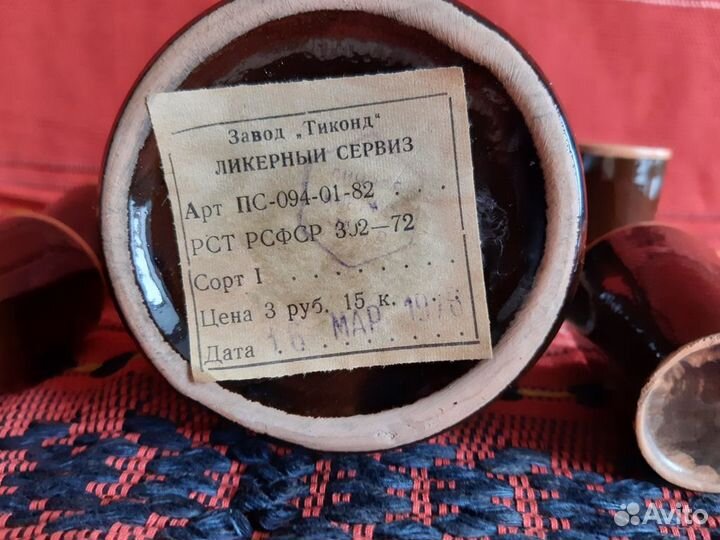 Завод „Тиконд"
ЛИКЕРНЫЙ СЕРВИЗ
Арт ПС-094-01-82 . . .
РСТ РСФСР 302—72
Сорт I . . . . . . . .
Цена 3 руб. 15 к. . . .
Дата 16 МАР 1976
Avito